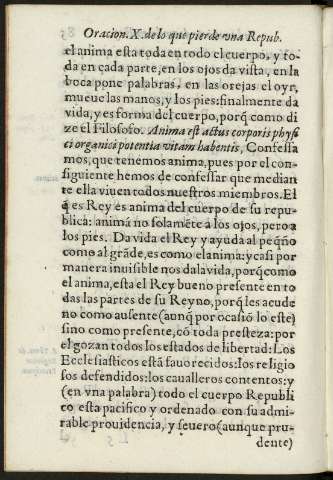 Oracion. X. de lo que pierde vna Repub.
el anima esta toda en todo el cuerpo, y to-
da en cada parte, en los ojos da vista, en la
boca pone palabras, en las orejas el oyr,
mueue las manos, y los pies: finalmente da
vida, y es forma del cuerpo, porq̃ como di
ze el Filosofo. Anima est actus corporis physi
ci organici potentia vitam habentis, Confessa
mos, que tenemos anima, pues por el con-
siguiente hemos de confessar que median
te ella viuen todos nuestros miembros. El
q̃ es Rey es anima del cuerpo de su repu-
blica: animá no solamẽte à los ojos, pero a
los pies. Da vida el Rey y ayuda al peq̃ño
como al grãde, es como el anima: y casi por
manera inuisible nos da la vida, porq̃ como
el anima, està el Rey bueno presente en to
das las partes de su Reyno, porq̃ les acude
no como ausente (aunq̃ por ocasiõ lo estè)
sino como presente, cõ toda presteza: por
el gozan todos los estados de libertad: Los
Ecclesiasticos estã fauorecidos: los religio
sos defendidos: los caualleros contentos: y
(en vna palabra) todo el cuerpo Republi
co esta pacifico y ordenado con su admi-
rable prouidencia, y seuero (aunque pru-
dente)